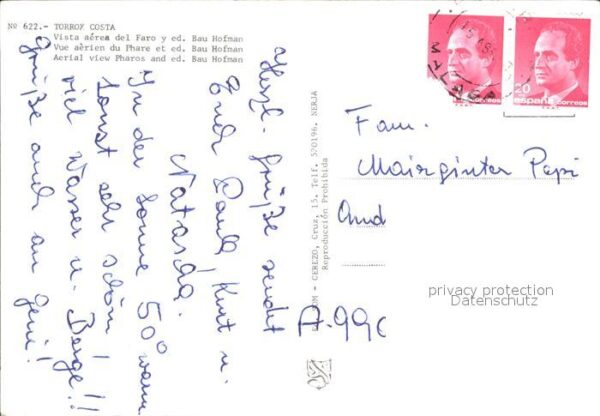 Nº 622.- TORROX COSTA
Vista aérea del Faro y ed. Bau Hofman
Vue aèrien du Phare et ed. Bau Hofman
Aerial view Pharos and ed. Bau Hofman
Herzl. Grüße sendet
Euch Paula, Kurt u.
Natascha.
In der Sonne 50° warm
sonst sehr schön!
viel Wasser u. Berge!!
Grüße auch an Geni!
CEREZO, Cruz, 15. Telf. 520196. NERJA
Reproducción Prohibida
MALAGA
20
españa correos
Fam.
Mairginter Pepi
And
A-99
privacy protection
Datenschutz